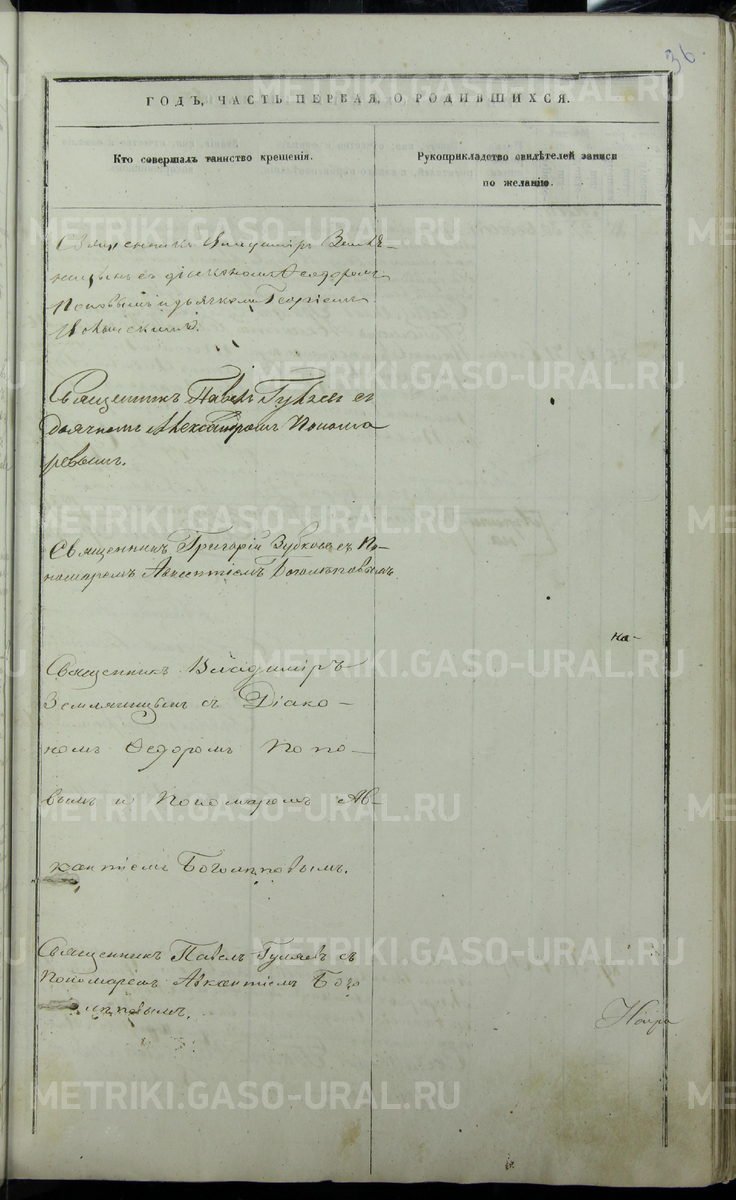 36.
ГОДЪ, ЧАСТЬ ПЕРВАЯ, О РОДИВШИХСЯ.
Кто совершалъ таинство крещенія.
Рукоприкладство свидѣтелей записи
по желанію.
Священникъ Владиміръ Земля-
ницынъ съ діакономъ Ѳеодоромъ
Поповымъ и дьячкомъ Георгіемъ
Священникъ Павелъ Гуляевъ съ
дьячкомъ Александромъ Понома
ревымъ.
Священникъ Григорій Зубковъ съ По-
номаремъ Авксентіемъ Боголѣповымъ
на-
Священникъ Владиміръ
Земляницынъ съ Діако-
номъ Ѳедоромъ Попо-
вымъ и Пономаремъ Ав-
ксентіемъ Боголѣповымъ.
Священникъ Павелъ Гуляевъ съ
Пономаремъ Авксентіемъ Бого
лѣповымъ.
METRIKI.GASO-URAL.RU